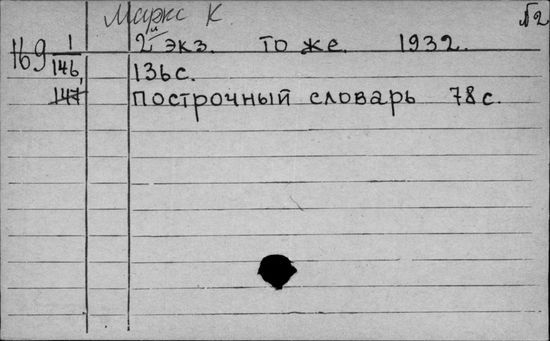 Маркс К.
√2
2й экз. то же. 1932.
169 1/146, 136 с.
147 Построчный словарь 78 с.